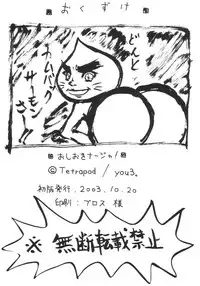 おくずけ
どんと
カムバック
サーモン
さー!!
おしおきナージャ!
© Tetrapod / you3。
初版発行。2003.10.20
印刷:プロス 様
※ 無断転載禁止